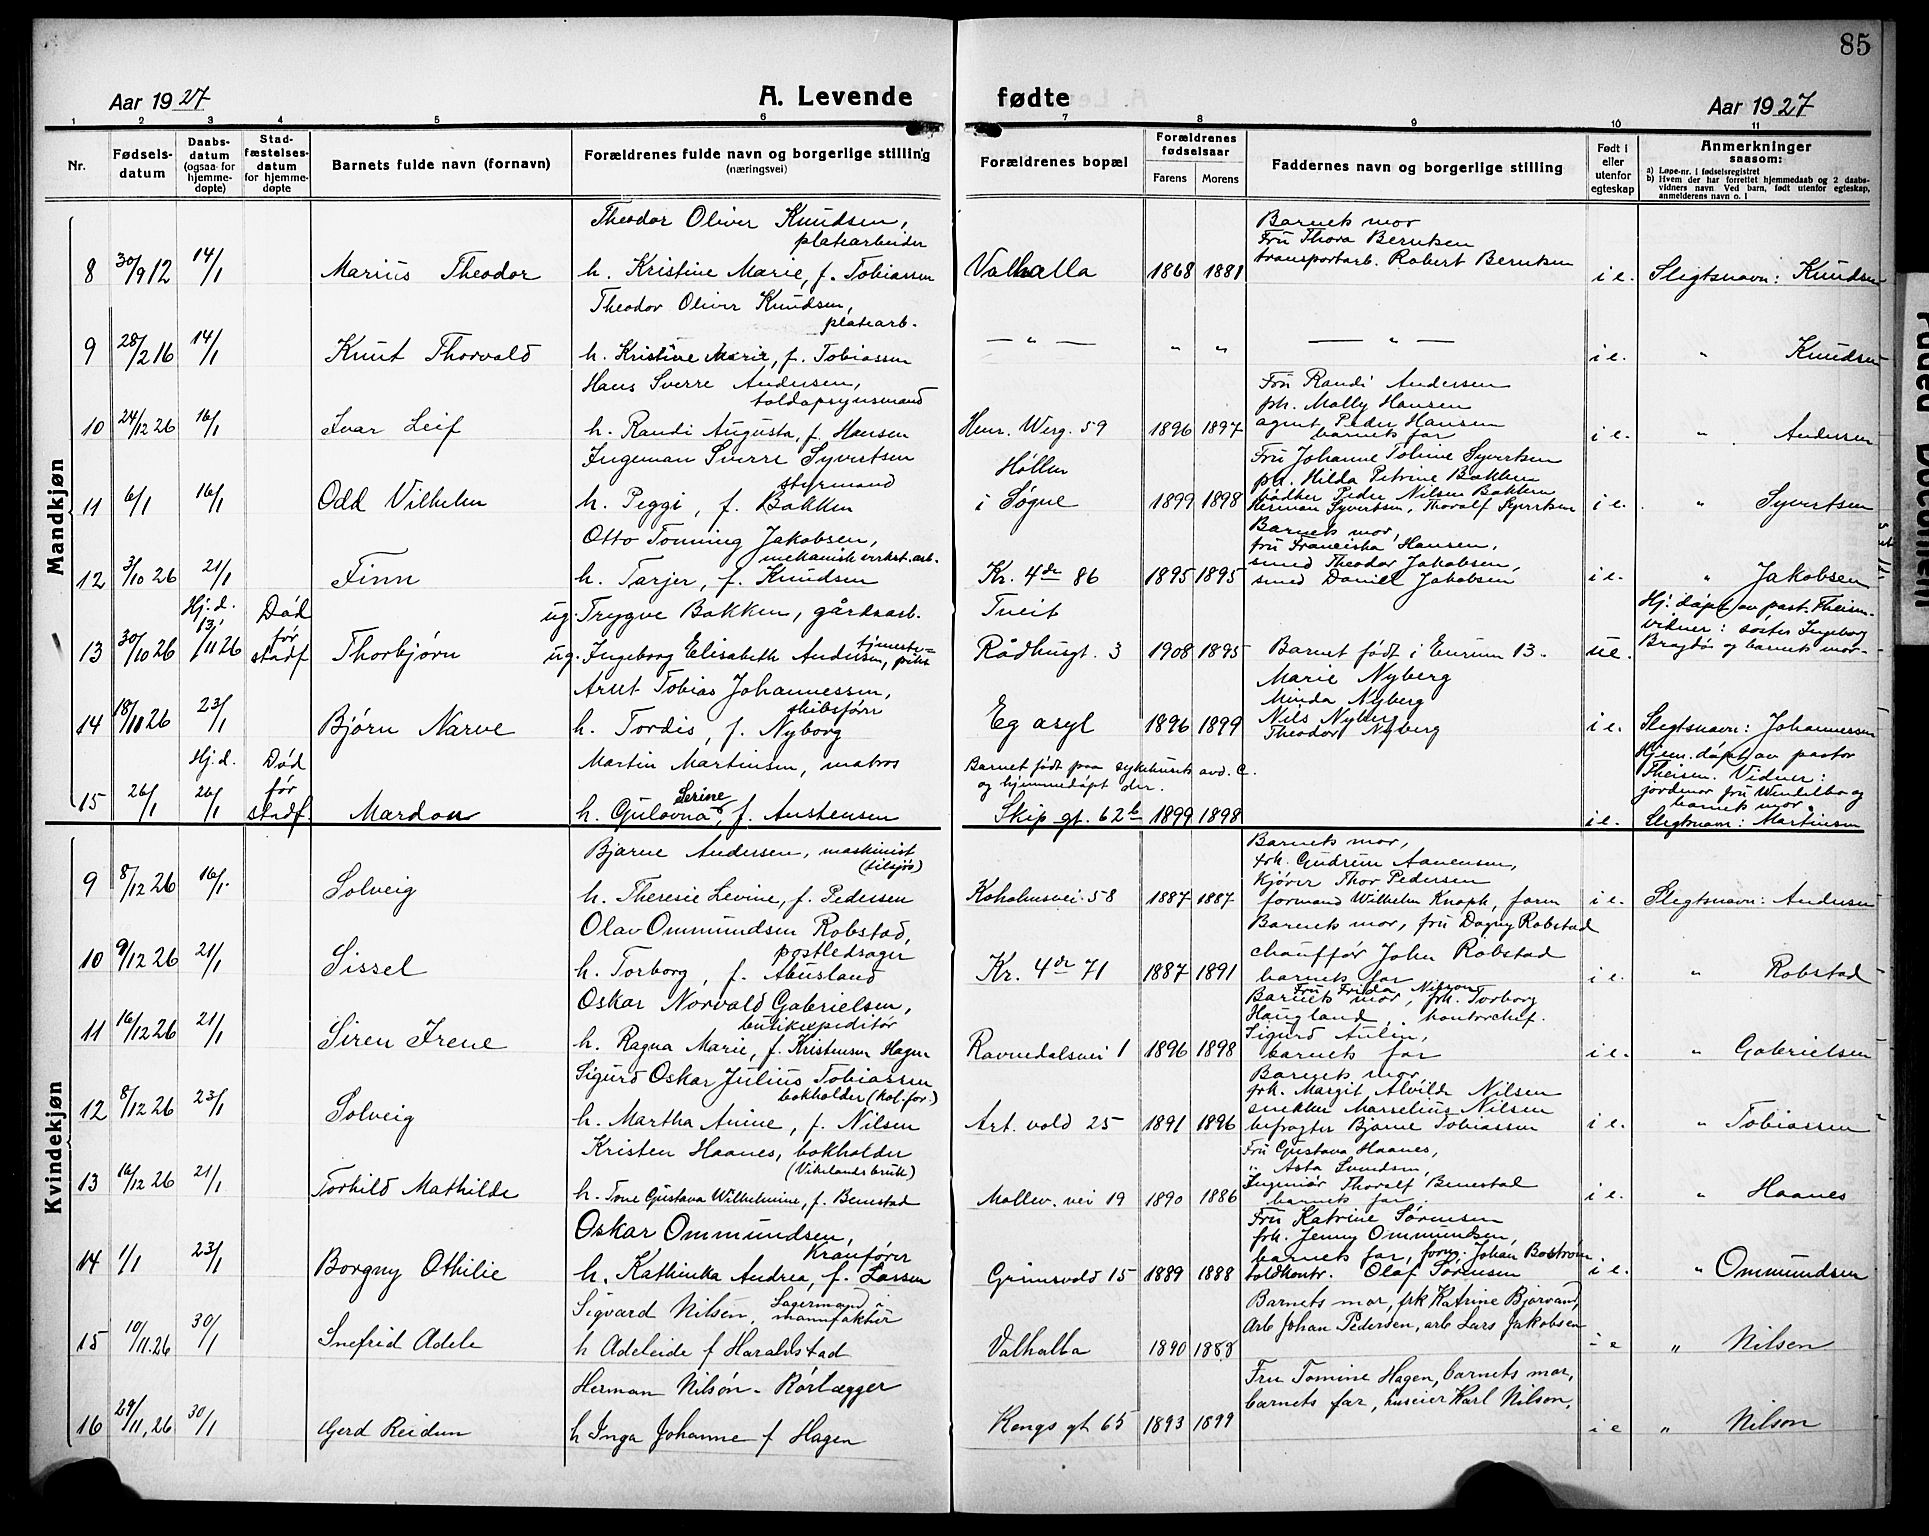 85
Aar 1927 A. Levende fødte Aar 1927
1 2 3 4 5 6 7 8 9 10 11
Nr. Fødsels-datum Daabs-datum (ogsaa for hjemme-døpte) Stad-fæstelses-datum for hjemme-døpte Barnets fulde navn (fornavn) Forældrenes fulde navn og borgerlige stilling (næringsvei) Forældrenes bopæl Forældrenes fødselsaar Farens Morens Faddernes navn og borgerlige stilling Født i eller utenfor egteskap Anmerkninger saasom:
a) Løpe-nr. i fødselsregistret
b) Hvem der har forrettet hjemmedaab og 2 daabs-vidners navn Ved barn, født utenfor egteskap, anmelderens navn o. l
Mandkjøn
Theodor Oliver Knudsen, platearbeider Barnets mor
Fru Thora Berntsen
8 30/9 12 14/1 Marius Theodor h. Kristine Marie, f. Tobiassen Valhalla 1868 1881 transportarb. Robert Berntsen i e. Slegtsnavn: Knudsen
Theodor Oliver Knudsen, platearb.
9 28/2 16 14/1 Knut Thorvald h. Kristine Marie, f. Tobiassen — " — " " — " — i e. " Knudsen
Hans Sverre Andersen, toldopsynsmand Fru Randi Andersen
frk. Molly Hansen
10 24/12 26 16/1 Ivar Leif h. Randi Augusta, f. Hansen Henr. Werg. 59 1896 1897 agent Peder Hansen
barnets far i e. " Andersen
Ingeman Sverre Syvertsen styrmand Høllen Fru Johanne Toline Syvertsen
frk. Hilda Petrine Bakken
11 6/1 16/1 Odd Vilhelm h. Peggi, f. Bakken i Søgne 1899 1898 Peder Nilsen Bakken
Herman Syvertsen, Thoralf Syvertsen i e. " Syvertsen
Otto Tonning Jakobsen, mekanisk verkst. arb. Barnets mor,
fru Franciska Hansen,
12 3/10 26 21/1 Finn h. Tarjer, f. Knudsen Kr. 4de 86 1895 1895 smed Theodor Jakobsen,
smed Daniel Jakobsen i e. " Jakobsen
Hj. d. Død ug. Trygve Bakken, gårdsarb. Tveit Hj. døpt av past. Theisen
13 30/10 26 13/11 26 før stadf. Thorbjørn ug. Ingeborg Elisabeth Andersen, tjeneste=pike Rådhusgt. 3 1908 1895 Barnet født i Eurum 13. ue. vidner: søster Ingeborg
Brøjdø og barnets mor-
Arnt Tobias Johannessen, skibsfører Marie Nyberg
Minda Nyberg
14 18/11 26 23/1 Bjørn Narve h. Tordis, f. Nyborg Eg asyl 1896 1899 Nils Nyberg
Theodor Nyberg i e. Slegtsnavn: Johannessen
Hj. d. Død Martin Martinsen, matros Barnet født paa sykehusets avd. C.
og hjemmedøpt der. Hjem. døpt av pastor
Theisen. Vidner:
jordmor fru Wendelbo og
barnets mor.
15 26/1 26/1 før stadf. Mardon h. Gulovna Serine, f. Austensen Skip. gt. 62b 1899 1898 i e. Slegtsnavn: Martinsen
Kvindekjøn
Bjarne Andersen, maskinist (tilsjøs) Barnets mor,
frk. Gudrun Aanensen,
9 8/12 26 16/1 Solveig h. Theresie Levine, f. Pedersen Koholmsvei 58 1887 1887 kjører Thor Pedersen
formand Wilhelm Knoph, farm i e. Slegtsnavn: Andersen
Olav Ommundsen Robstad, postledsager Barnets mor, fru Dagny Robstad
10 9/12 26 21/1 Sissel h. Torborg, f. Abusland Kr. 4de 71 1887 1891 chauffør John Robstad
barnets far i e. " Robstad
Oskar Norvald Gabrielsen, butikexpeditør Fru Frida Nilsson
Barnets mor, frk. Torborg
11 16/12 26 21/1 Siren Irene h. Ragna Marie, f. Kristensen Hagen Ravnedalsvei 1 1896 1898 Haugland, kontorchef.
Sigurd Aulin,
barnets far i e. " Gabrielsen
Sigurd Oskar Julius Tobiassen bokholder (kol. for.) Barnets mor
frk. Margit Alvilde Nilsen
12 8/12 26 23/1 Solveig h. Martha Anine, f. Nilsen Art. vold 25 1891 1896 snekker Marselius Nilsen
befragter Bjarne Tobiassen i e. " Tobiassen
Kristen Haanes, bokholder (Vikelands bruk) Fru Gustava Haanes,
" Asta Svendsen,
13 16/12 26 21/1 Torhild Mathilde h. Tone Gustava Wilhelmine, f. Benestad Mollev. vei 19 1890 1886 Ingeniør Thoralf Benestad
barnets far. i e. " Haanes
Oskar Ommundsen, Kranfører Fru Katrine Sørensen
frk. Jenny Ommundsen,
14 1/1 23/1 Borgny Othilie h. Kathinka Andrea, f. Lassen Grimsvold 15 1889 1888 barnets far, form. Johan Bostrøm.
toldkontr. Olaf Sørensen i e. " Ommundsen
Sigvard Nilsen, Lagermand i manufaktur Barnets mor, frk Katrine Bjorvand,
15 10/11.26 30/1 Snefrid Adele h Adeleide f Haraldstad Valhalla 1890 1888 Arb Johan Pedersen, arb Lars Jakobsen i e " Nilsen
Herman Nilson - Rørlægger Fru Tomine Hagen, barnets mor,
16 29/11.26 30/1 Gerd Reidun h Inga Johanne f Hagen Kongs gt 65 1893 1899 barnets far, huseier Karl Nilson, i e " Nilson